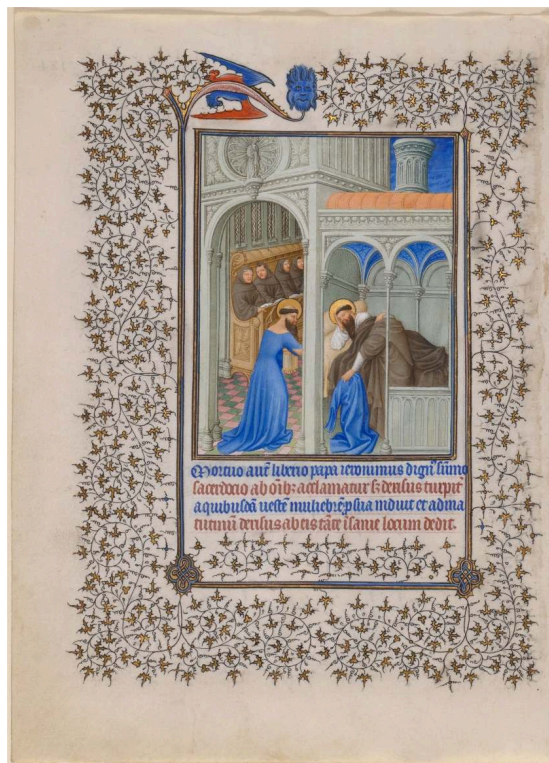 Mortuo autē liberio papa ieronimus dign̄ sūmo
sacerdocio ab oībꝫ acclamatur sꝫ derisus turpit̄
a quibusdā ueste muliebrē induit et ad ma
tutinū derisus ab eis tāte īsanie locum dedit.